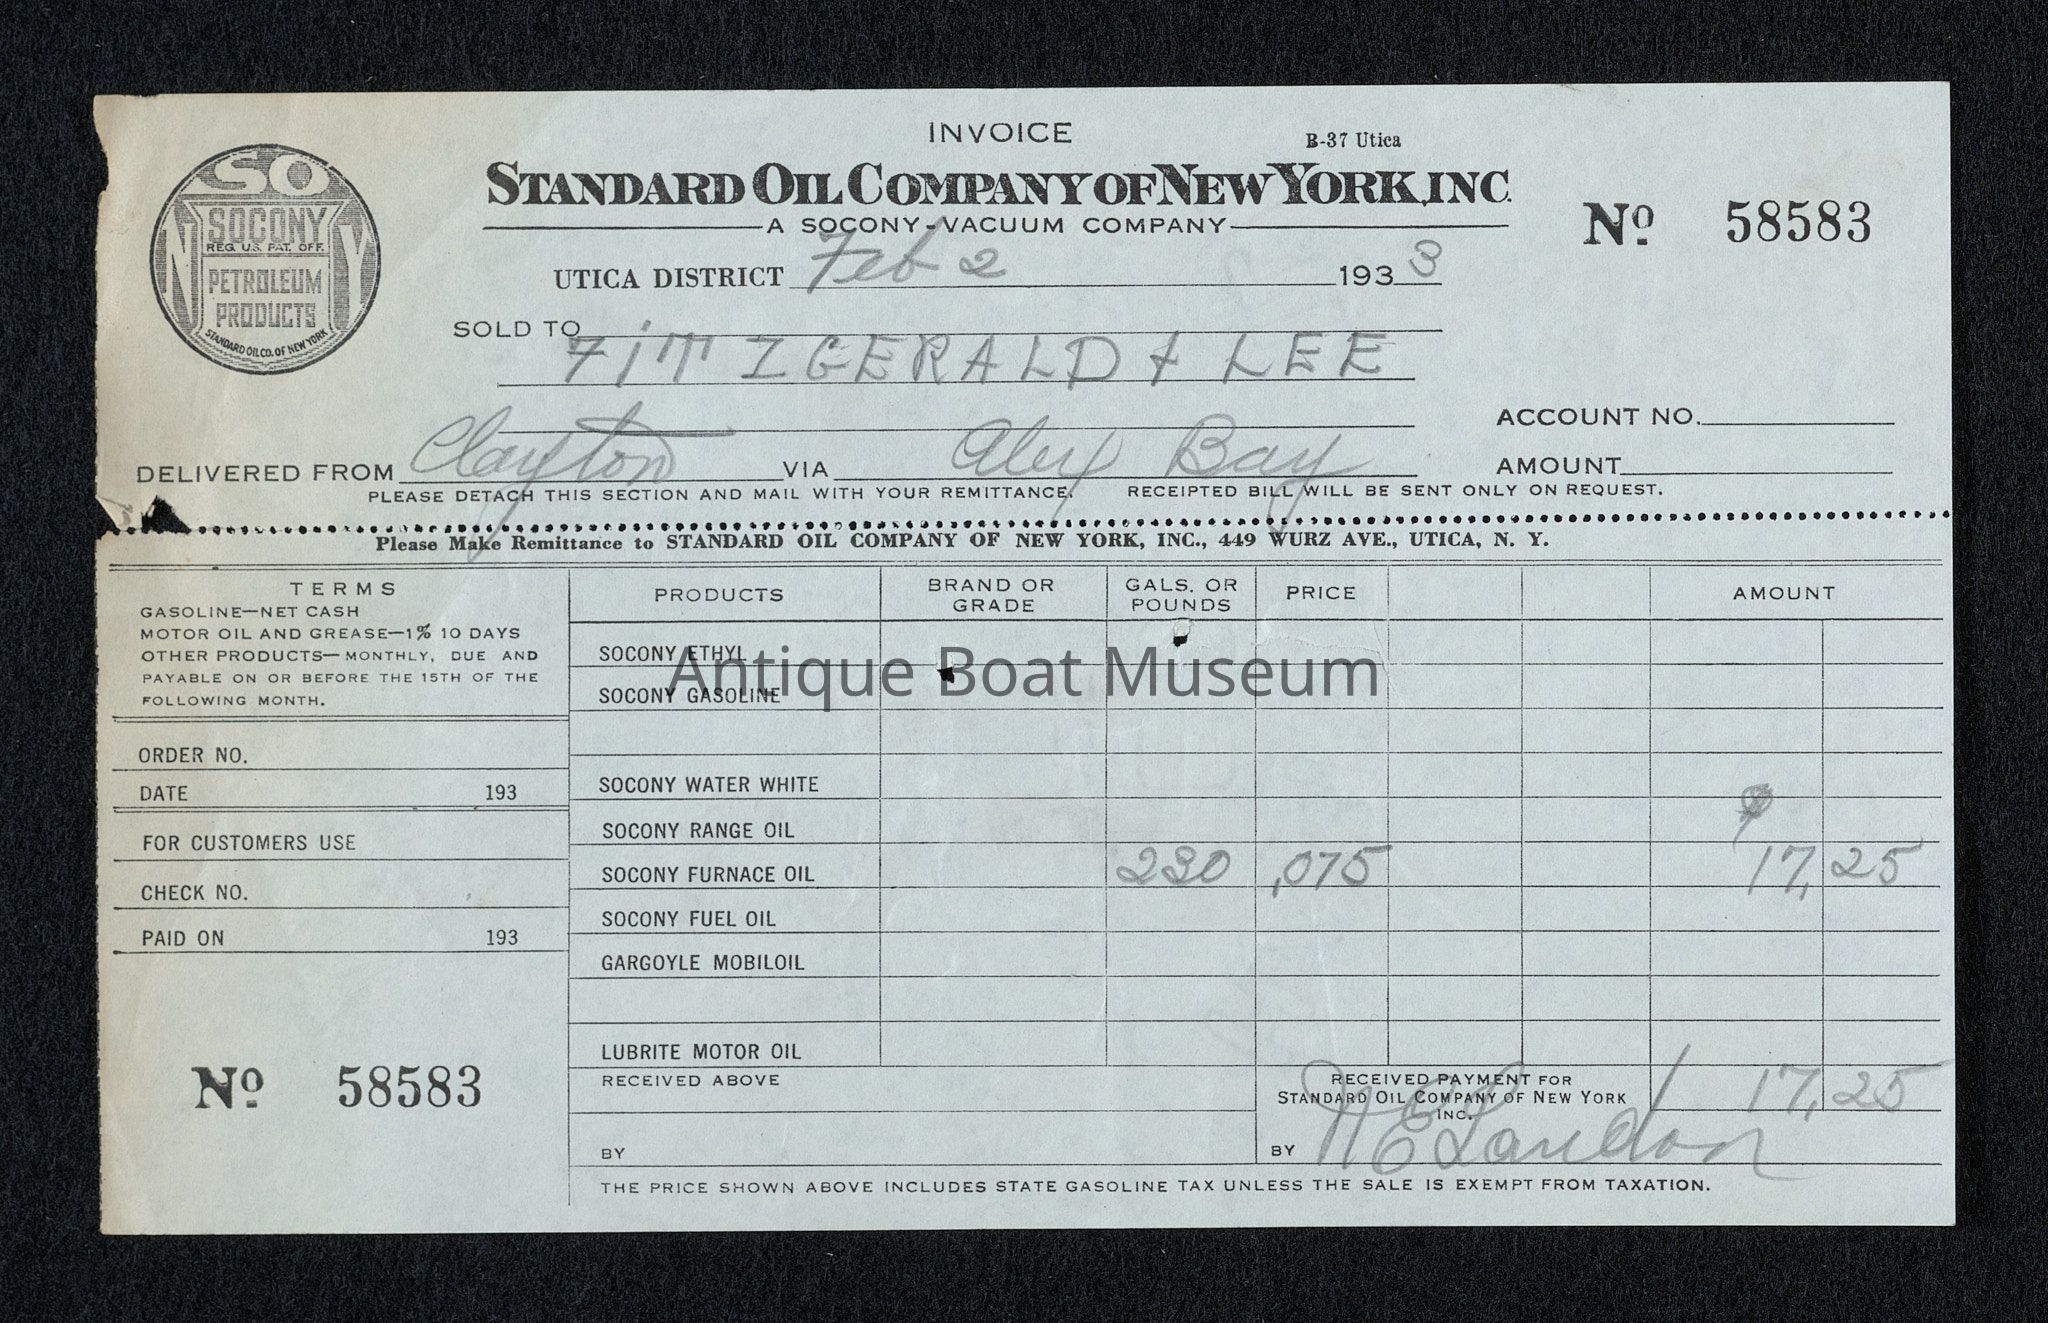 INVOICE
B-37 Utica
STANDARD OIL COMPANY OF NEW YORK, INC.
A SOCONY-VACUUM COMPANY
No 58583
SO
N Y
SOCONY
REG. U.S. PAT. OFF.
PETROLEUM
PRODUCTS
STANDARD OIL CO. OF NEW YORK
UTICA DISTRICT Feb 2 193 3
SOLD TO
FITZGERALD & LEE
ACCOUNT NO.
DELIVERED FROM Clayton VIA Alex Bay
AMOUNT
PLEASE DETACH THIS SECTION AND MAIL WITH YOUR REMITTANCE. RECEIPTED BILL WILL BE SENT ONLY ON REQUEST.
Please Make Remittance to STANDARD OIL COMPANY OF NEW YORK, INC., 449 WURZ AVE., UTICA, N. Y.
TERMS
GASOLINE—NET CASH
MOTOR OIL AND GREASE—1% 10 DAYS
OTHER PRODUCTS—MONTHLY, DUE AND
PAYABLE ON OR BEFORE THE 15TH OF THE
FOLLOWING MONTH.
ORDER NO.
DATE 193
FOR CUSTOMERS USE
CHECK NO.
PAID ON 193
No 58583
PRODUCTS BRAND OR GRADE GALS. OR POUNDS PRICE AMOUNT
SOCONY ETHYL
Antique Boat Museum
SOCONY GASOLINE
SOCONY WATER WHITE
SOCONY RANGE OIL
SOCONY FURNACE OIL 230 .075 17.25
SOCONY FUEL OIL
GARGOYLE MOBILOIL
LUBRITE MOTOR OIL
RECEIVED ABOVE
BY
RECEIVED PAYMENT FOR
STANDARD OIL COMPANY OF NEW YORK
INC.
17.25
BY
THE PRICE SHOWN ABOVE INCLUDES STATE GASOLINE TAX UNLESS THE SALE IS EXEMPT FROM TAXATION.